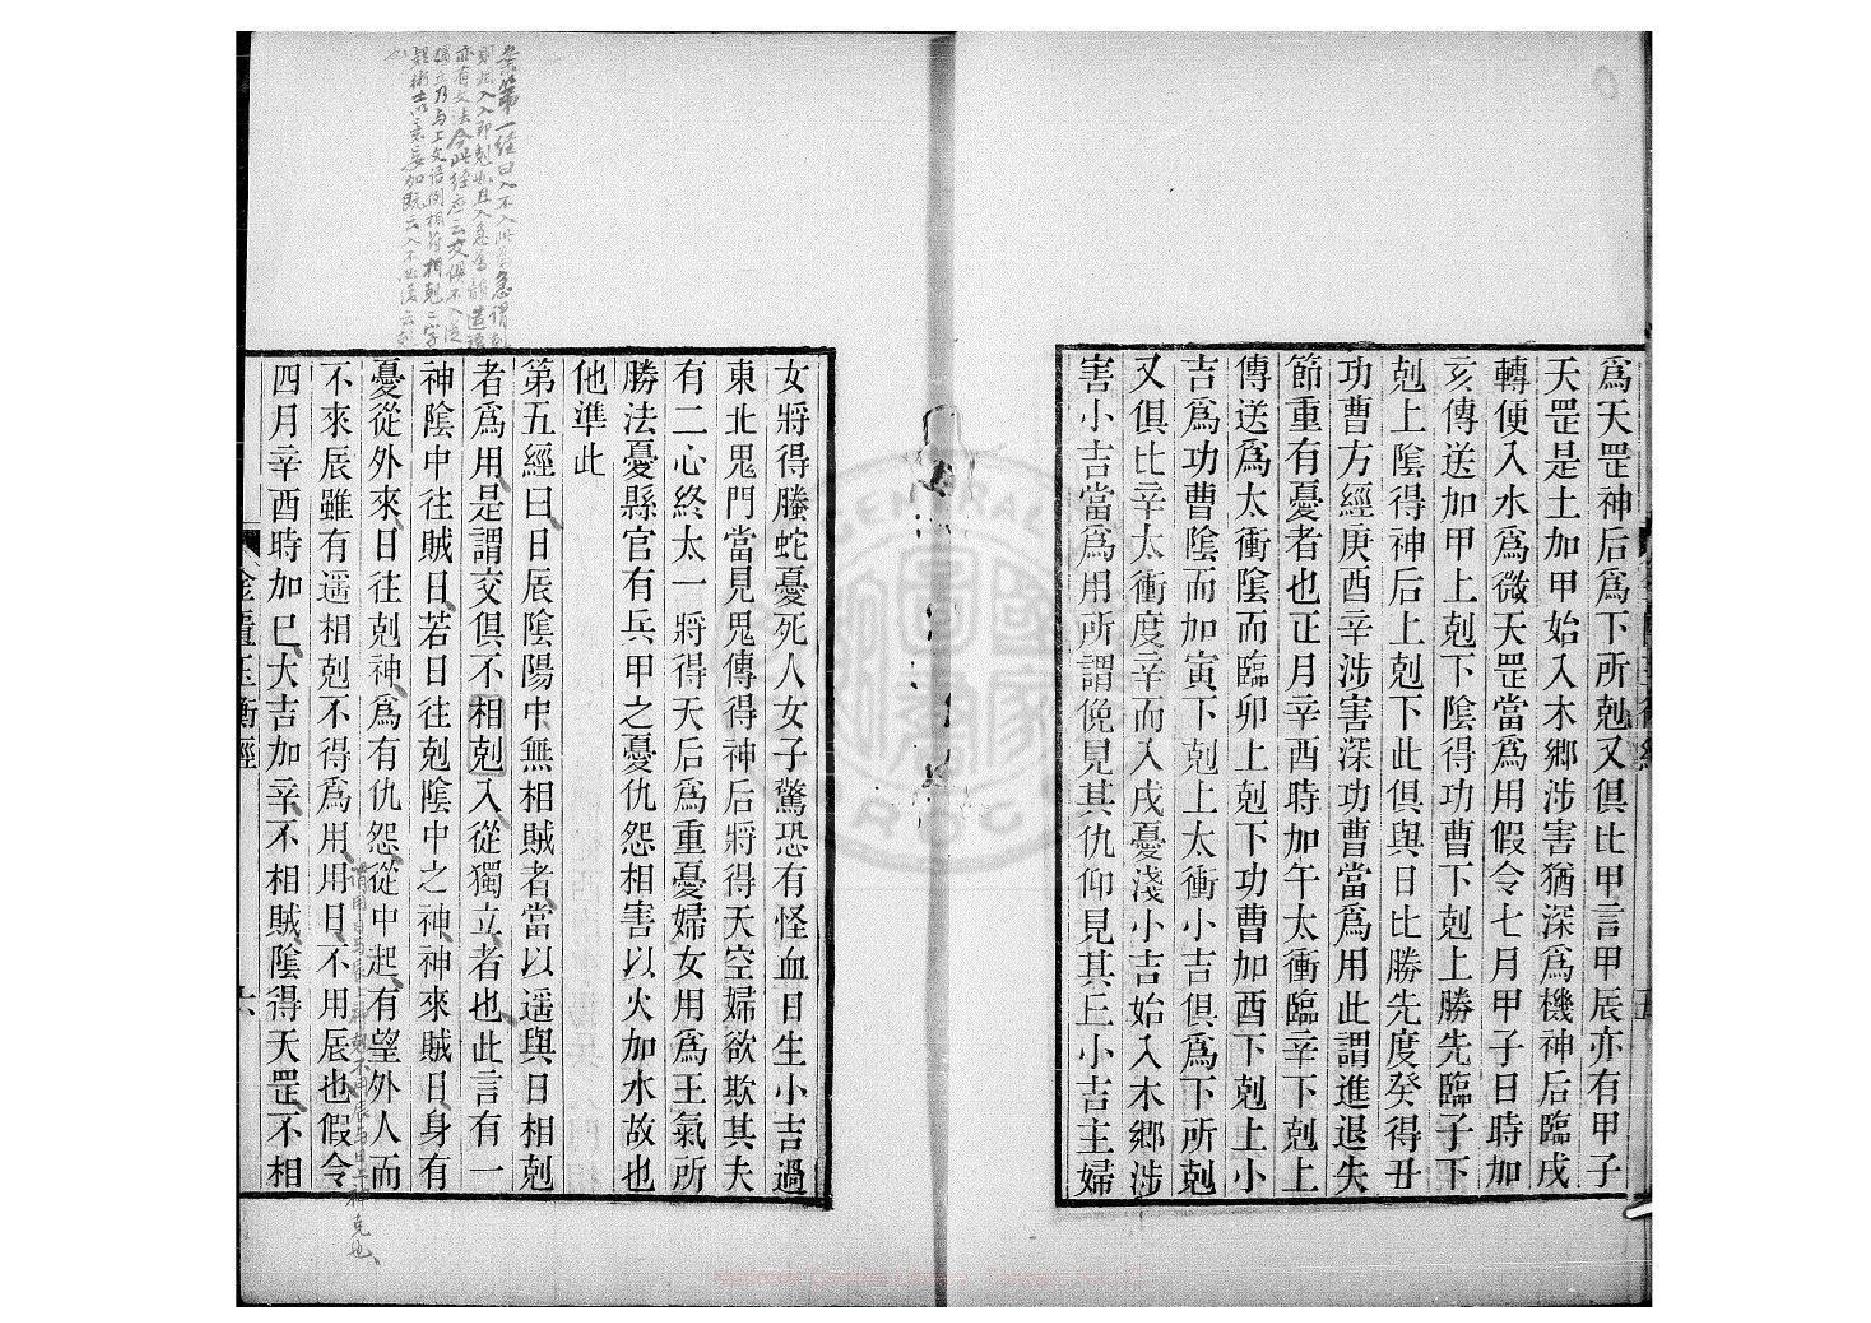 爲天罡神后爲下所剋又俱比甲言甲辰亦有甲子
天罡是土加甲始入木鄉涉害猶深爲機神后臨戌
轉便入水爲微天罡當爲用假令七月甲子日時加
亥傳送加甲上剋下陰得功曹下剋上勝先臨子下
剋上陰得神后上剋下此俱與日比勝先度癸得丑
功曹方經庚酉辛涉害深功曹當爲用此謂進退失
節重有憂者也正月辛酉時加午太衝臨辛下剋上
傳送爲太衝陰而臨卯上剋下功曹加酉下剋上小
吉爲功曹陰而加寅下剋上太衝小吉俱爲下所剋
又俱比辛太衝度辛而入戌憂淺小吉始入木鄉涉
害小吉當爲用所謂俛見其仇仰見其丘小吉主婦
女將得螣蛇憂死人女子驚恐有怪血日生小吉過
東北鬼門當見鬼傳得神后將得天空婦欲欺其夫
有二心終太一將得天后爲重憂婦女用爲王氣所
勝法憂縣官有兵甲之憂仇怨相害以火加水故也
他準此
第五經曰日辰陰陽中無相賊者當以遥與日相剋
者爲用是謂交俱不相剋入從獨立者也此言有一
神陰中往賊日若日往剋陰中之神神來賊日身有
憂從外來日往剋神爲有仇怨從中起有望外人而
不來辰雖有遥相剋不得爲用用日不用辰也假令
四月辛酉時加巳大吉加辛不相賊陰得天罡不相
金匱玉衡經
六